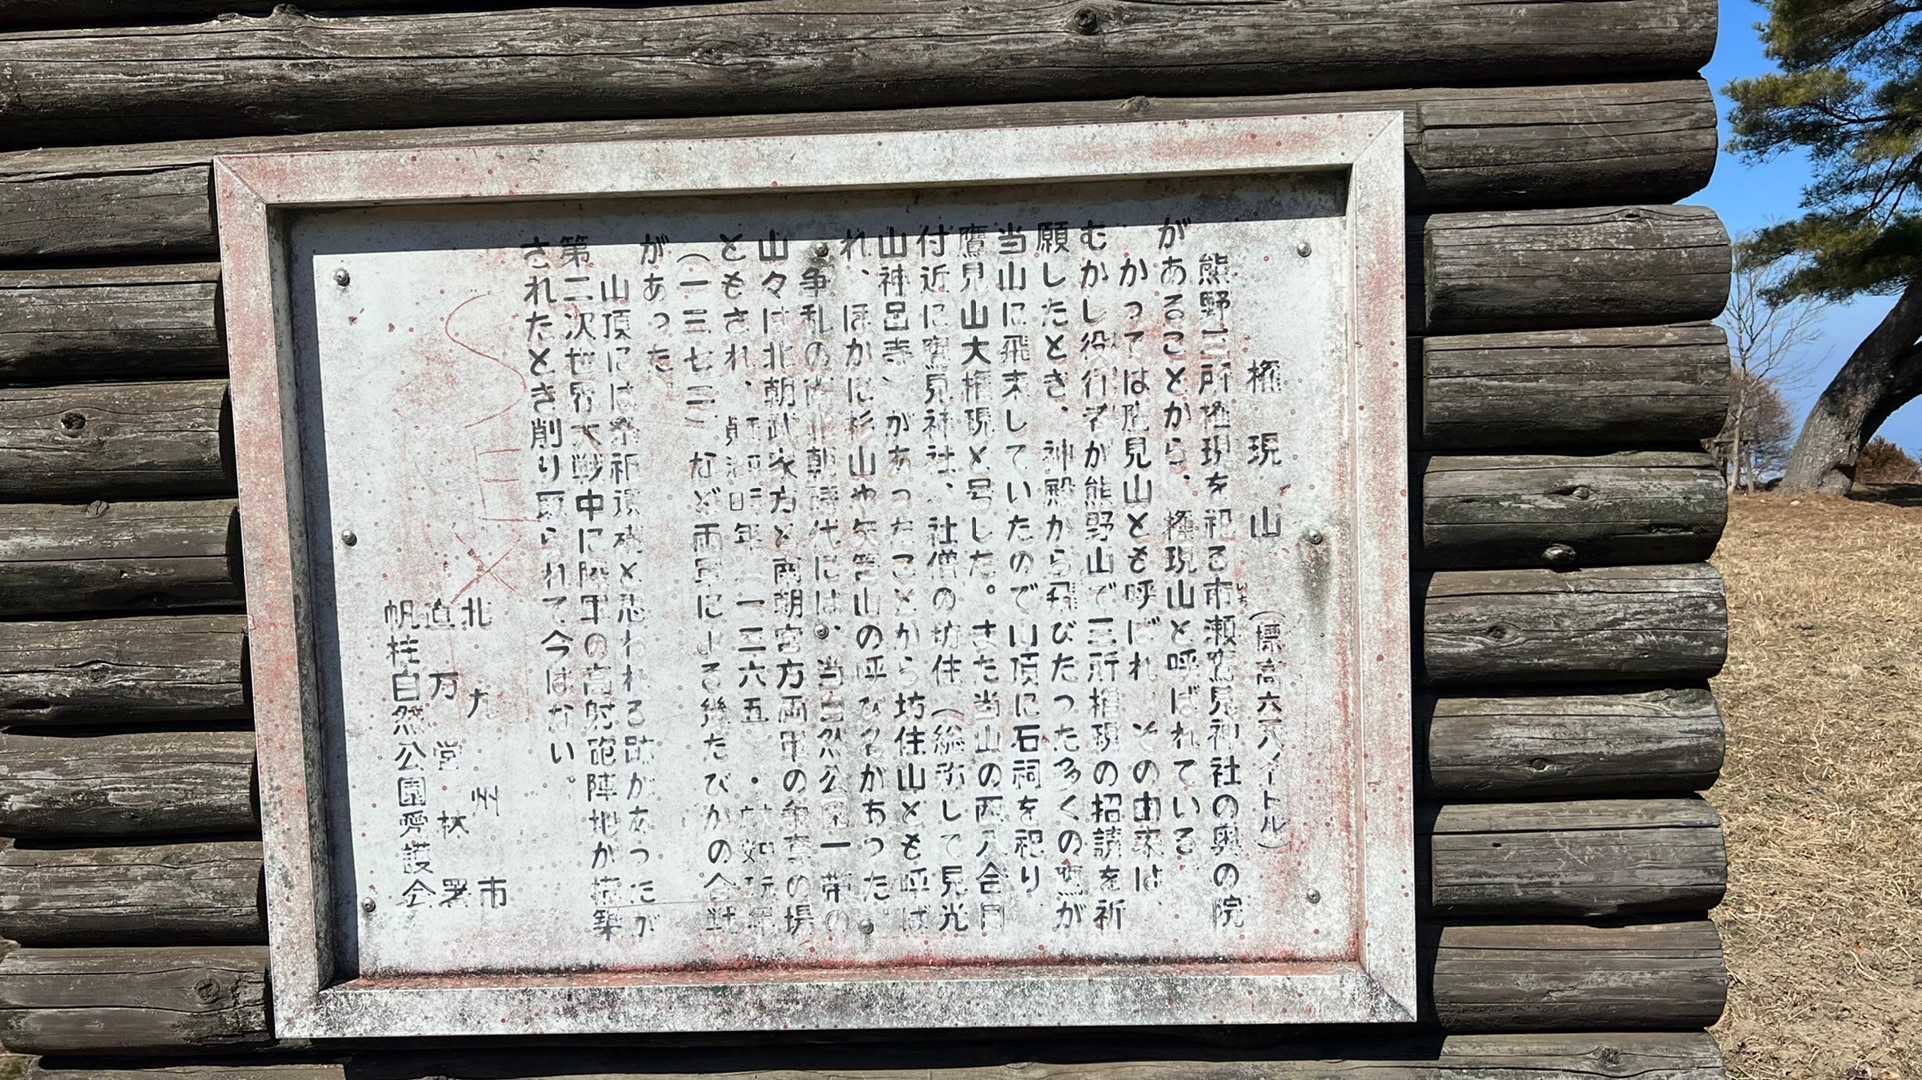 権現山 (標高六一七メートル)
熊野三所権現を祀る市瀬鷹見神社の奥の院
があることから、権現山と呼ばれている。
かっては鷹見山とも呼ばれ、その由来は、
むかし役行者が熊野山で三所権現の招請を祈
願したとき、神殿から飛びたった多くの鷹が
当山に飛来していたので山頂に石祠を祀り
鷹見山大権現と号した。また当山の西八合目
付近に鷹見神社、社僧の坊住(総称して見光
山神呂寺)があったことから坊住山とも呼ば
れ、ほかに杉山や矢筈山の呼び名があった。
争乱の南北朝時代には、当自然公園一帯の
山々は北朝武家方と南朝宮方両軍の争奪の場
ともされ、貞治四年(一三六五)・応安
(一三七三)など両軍による幾たびかの合戦
があった。
山頂には祭祀遺跡と思われる跡があったが
第二次世界大戦中に陸軍の高射砲陣地が構築
されたとき削り取られて今はない。
北九州市
直方営林署
帆柱自然公園愛護会
SEX